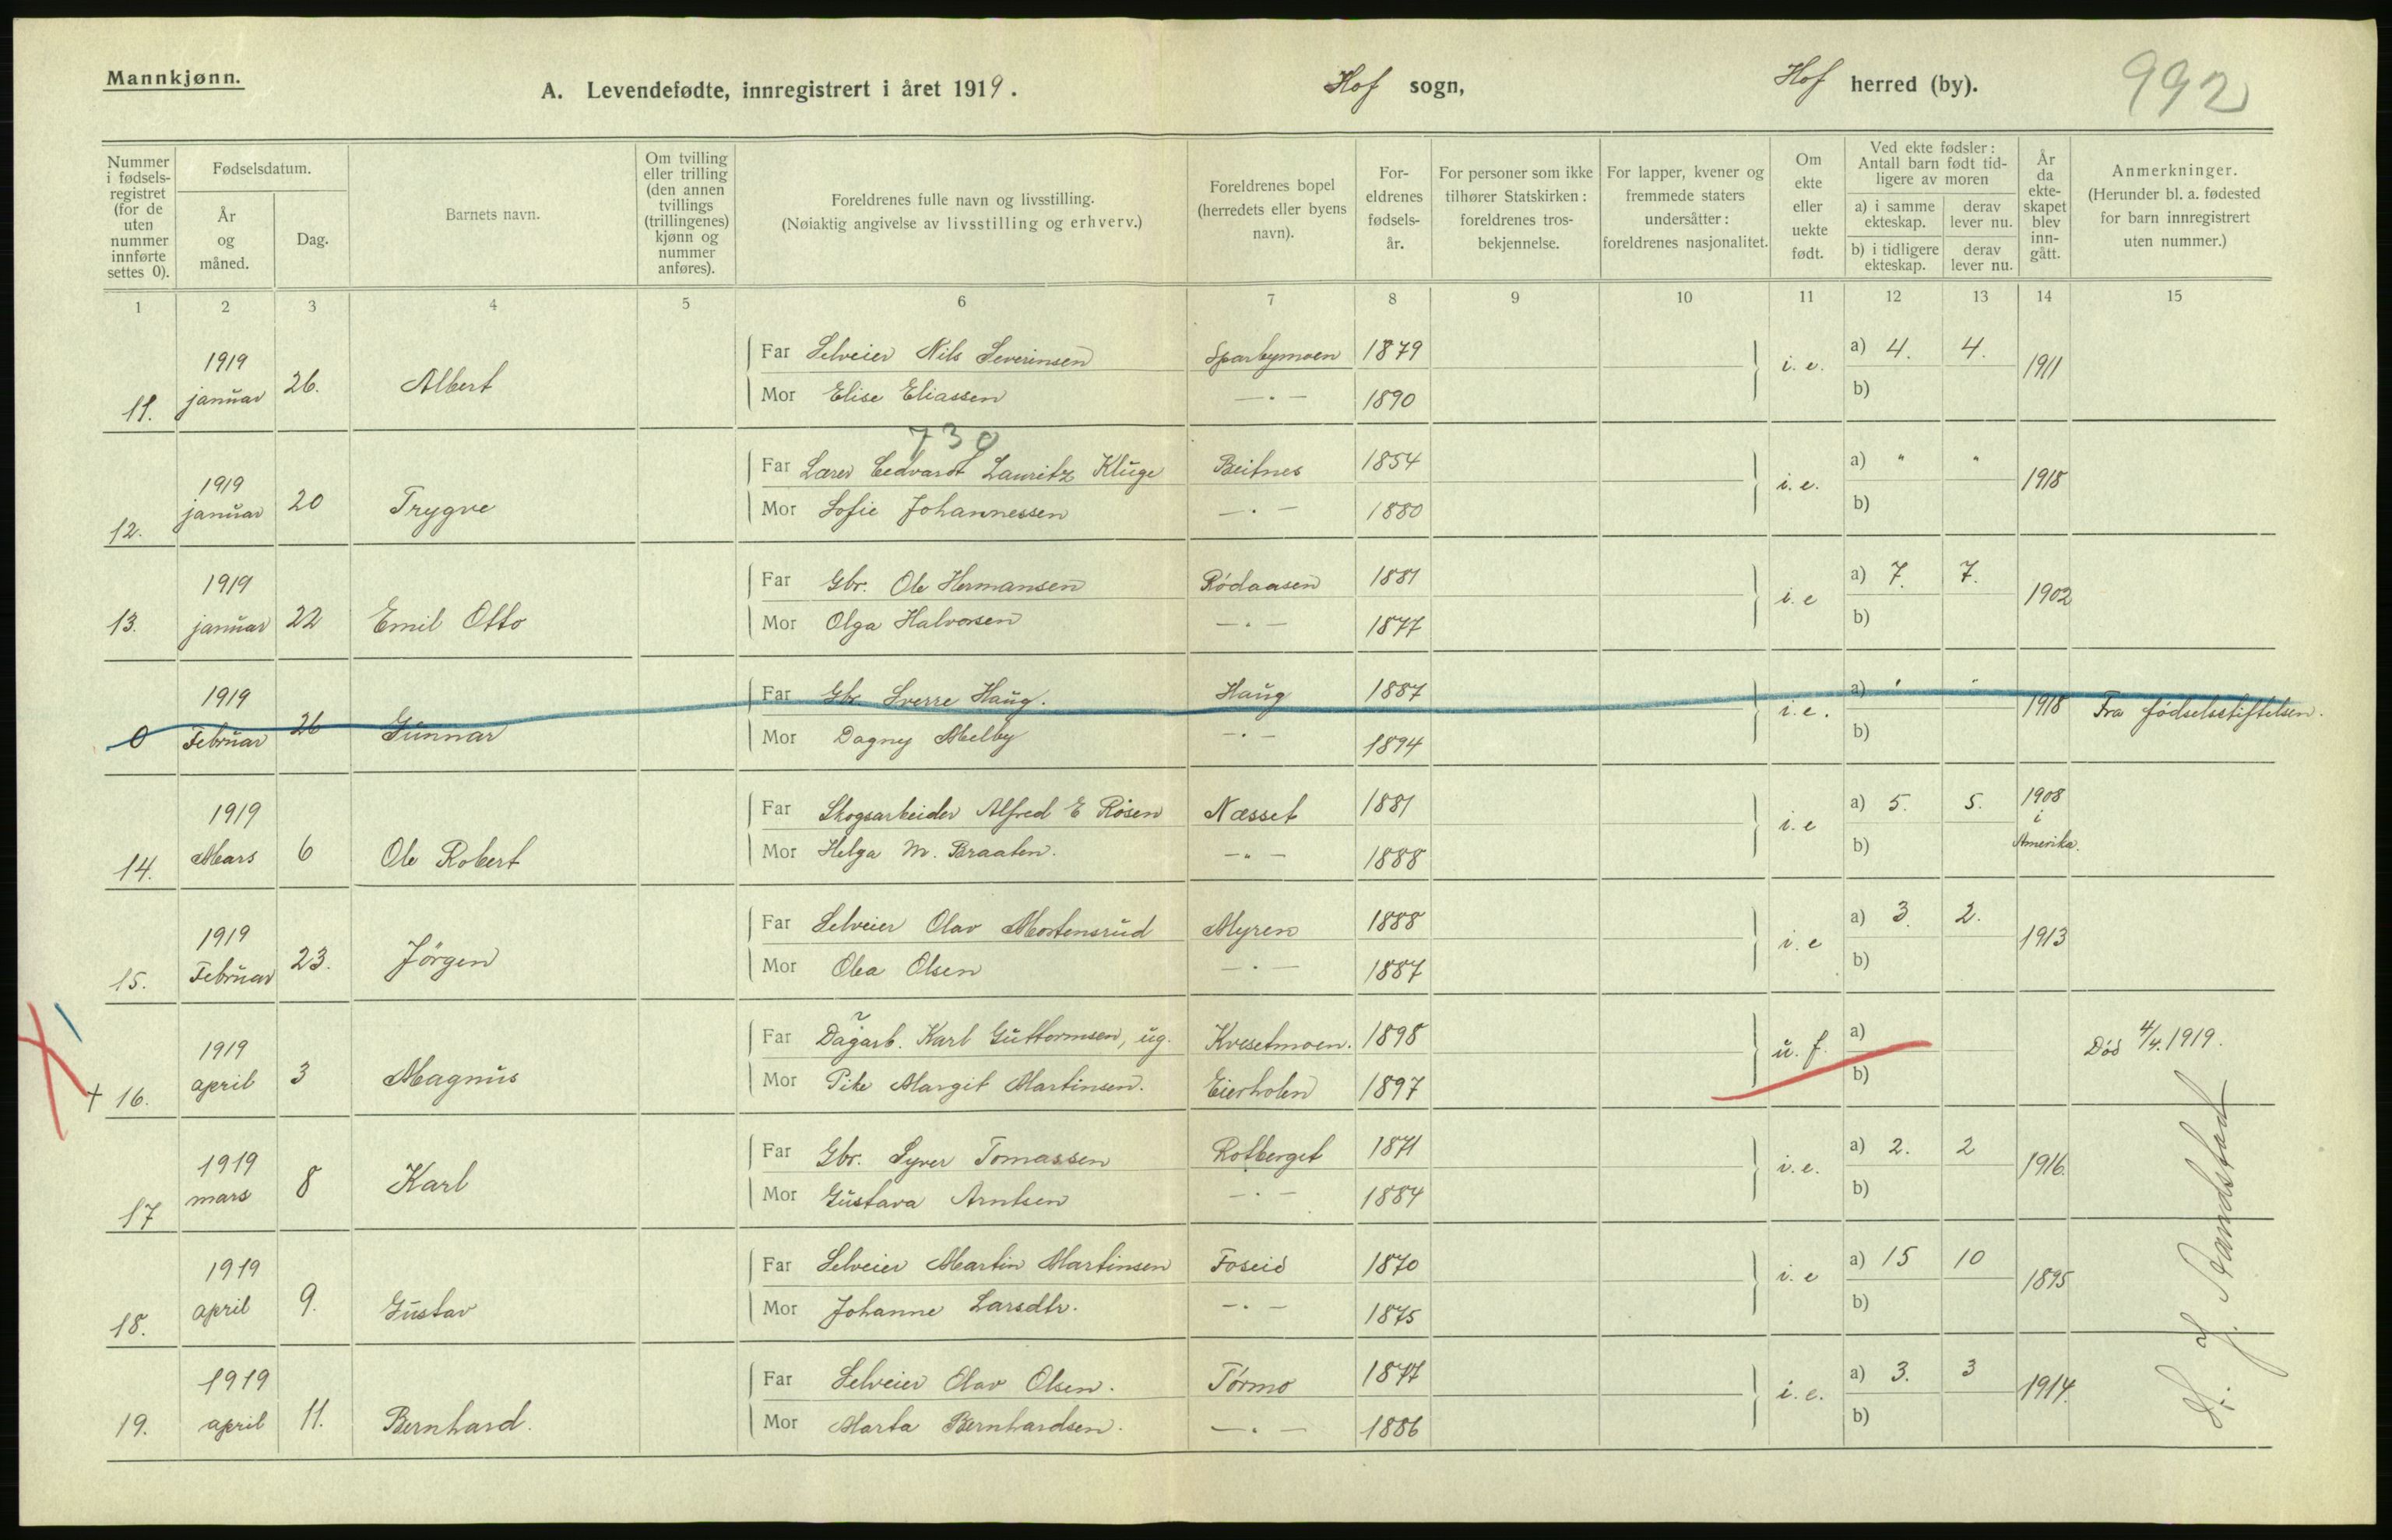 Mannkjønn.
A. Levendefødte, innregistrert i året 1919.
Hof sogn,
Hof herred (by).
992
Nummer i fødsels-registret (for de uten nummer innførte settes 0).
Fødselsdatum.
År og måned.
Dag.
Barnets navn.
Om tvilling eller trilling (den annen tvillings (trillingenes) kjønn og nummer anføres).
Foreldrenes fulle navn og livsstilling.
(Nøiaktig angivelse av livsstilling og erhverv.)
Foreldrenes bopel (herredets eller byens navn).
For-eldrenes fødsels-år.
For personer som ikke tilhører Statskirken: foreldrenes tros-bekjennelse.
For lapper, kvener og fremmede staters undersåtter: foreldrenes nasjonalitet.
Om ekte eller uekte født.
Ved ekte fødsler: Antall barn født tid-ligere av moren
a) i samme ekteskap.
derav lever nu.
b) i tidligere ekteskap.
derav lever nu.
År da ekte-skapet blev inn-gått.
Anmerkninger.
(Herunder bl. a. fødested for barn innregistrert uten nummer.)
1 2 3 4 5 6 7 8 9 10 11 12 13 14 15
11. 1919 januar 26. Albert
Far Selveier Nils Severinsen Sparbymoen 1879 i. e. a) 4. 4. 1911
Mor Elise Eliassen —"— 1890 b)
730
12. 1919 januar 20 Trygve
Far Lærer Edvardt Lauritz Kluge Beitnes 1854 i. e. a) " " 1918
Mor Sofie Johannessen —"— 1880 b)
13. 1919 januar 22 Emil Otto
Far Gbr. Ole Hermansen Rødaasen 1881 i. e a) 7. 7. 1902
Mor Olga Halvorsen —"— 1877 b)
0 1919 Februar 26 Gunnar
Far Gbr. Sverre Haug. Haug 1887 i. e. a) " " 1918 Fra fødselsstiftelsen.
Mor Dagny Melby —"— 1894 b)
14. 1919 Mars 6 Ole Robert
Far Skogsarbeider Alfred E Rosen Næsset 1881 i. e a) 5. 5. 1908 i Amerika.
Mor Helga M. Braaten. —"— 1888 b)
15. 1919 Februar 23. Jørgen
Far Selveier Olav Mortensrud Myren 1888 i. e a) 3. 2. 1913
Mor Olea Olsen —"— 1887 b)
+ 16. 1919 april 3 Magnus
Far Dagarb. Karl Guttormsen, ug. Kvesetmoen. 1898 u. f. a) Død 4/4.1919.
Mor Pike Margit Martinsen. Eierholen 1897 b)
17 1919 mars 8 Karl
Far Gbr. Syver Tomassen Rotberget 1871 i. e. a) 2. 2 1916.
Mor Gustava Arntsen —"— 1884 b)
18. 1919 april 9. Gustav
Far Selveier Martin Martinsen Foseid 1870 i. e a) 15 10 1895
Mor Johanne Larsdtr. —"— 1875 b)
19. 1919 april 11. Bernhard.
Far Selveier Olav Olsen. Tørmo 1877 i. e. a) 3. 3 1914.
Mor Marta Bernhardsen. —"— 1886 b)